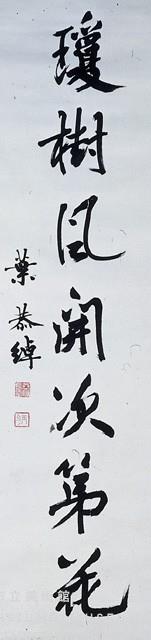 瓊樹風開次第花
葉恭綽